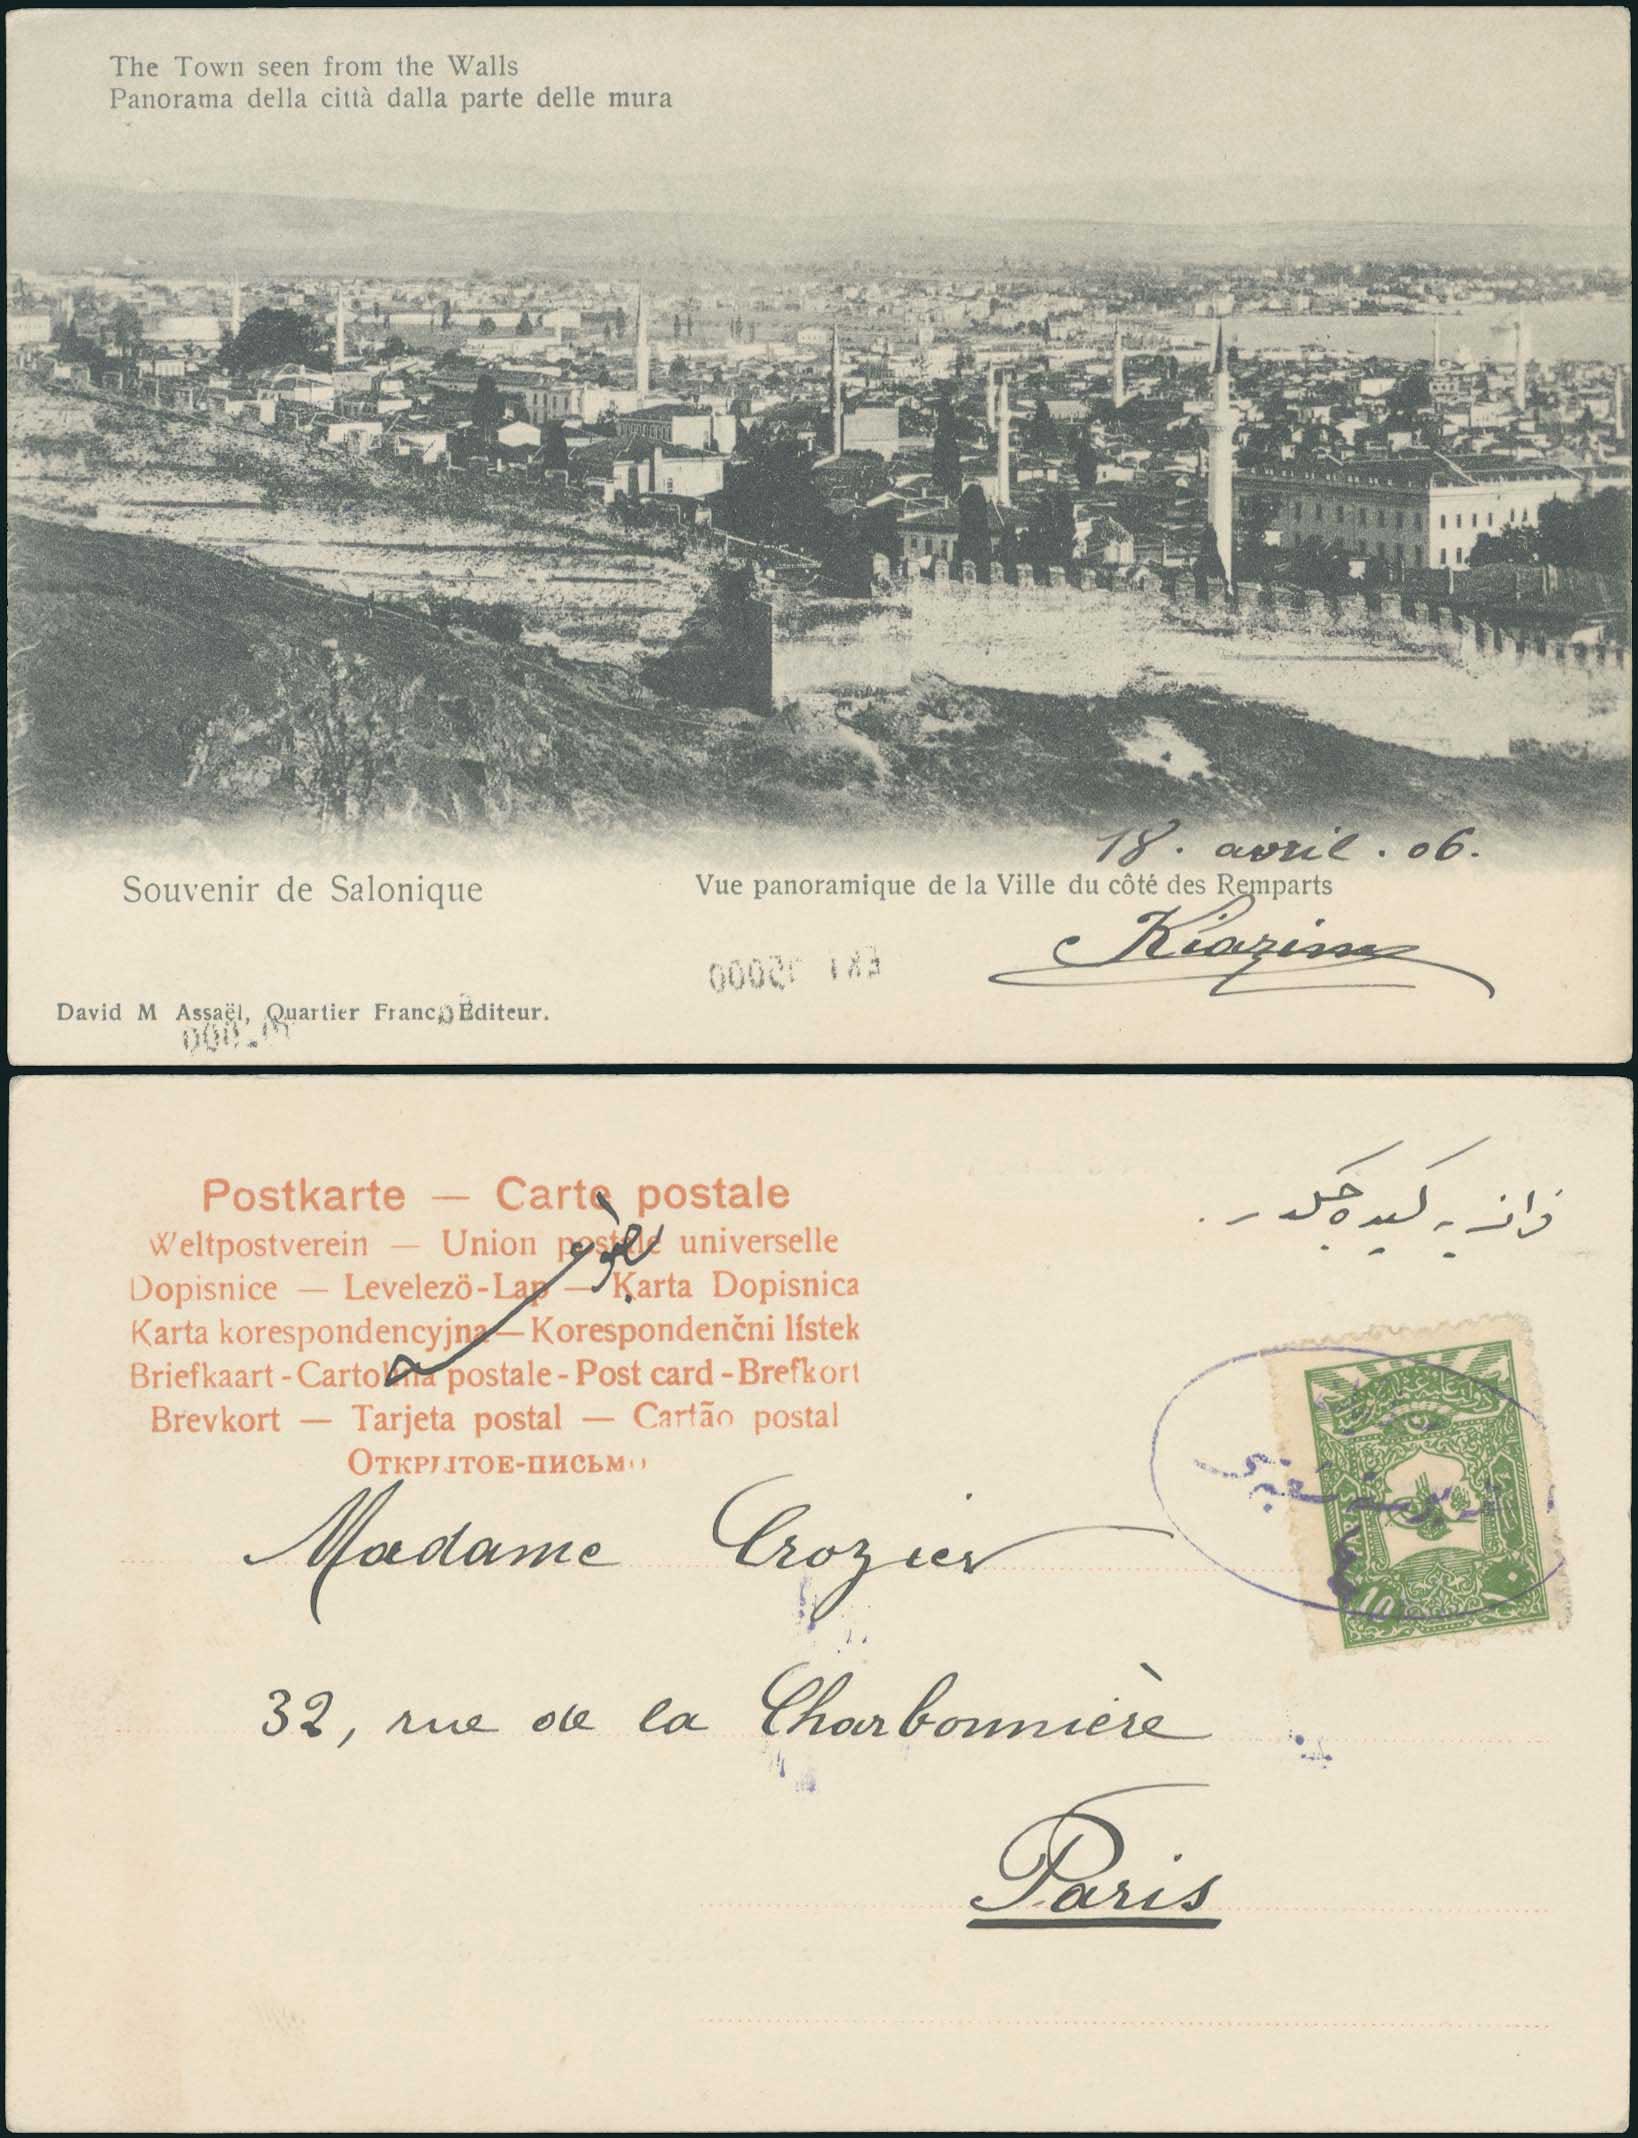 The Town seen from the Walls
Panorama della città dalla parte delle mura
18. avril. 06.
Souvenir de Salonique
Vue panoramique de la Ville du côté des Remparts
Kiazim
David M Assaël, Quartier Franc, Editeur.
فرانسه يه كيده جكدر.
Postkarte — Carte postale
Weltpostverein — Union postale universelle
Dopisnice — Levelezö-Lap — Karta Dopisnica
Karta korespondencyjna — Korespondenčni lístek
Briefkaart - Cartolina postale - Post card - Brefkort
Brevkort — Tarjeta postal — Cartão postal
Открытое-письмо
10
Madame Crozier
32, rue de la Charbonnière
Paris